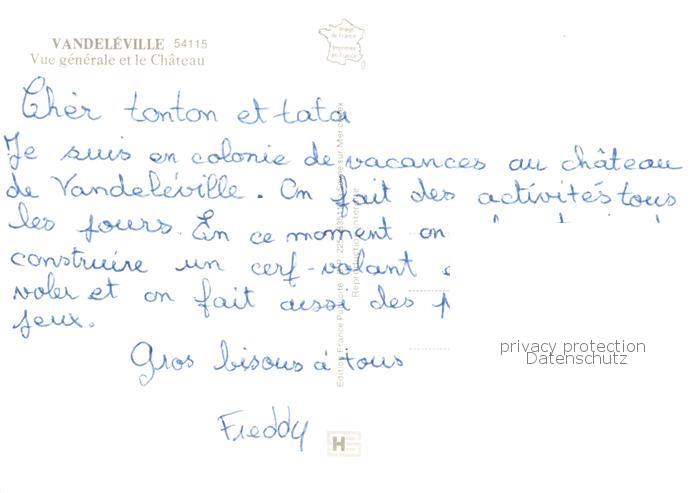 VANDELÉVILLE 54115
Vue générale et le Château
Image de France
Imprimée en France
Chèr tonton et tata
Je suis en colonie de vacances au château
de Vandeléville. On fait des activités tous
les jours. En ce moment on
construire un cerf-volant
voler et on fait aussi des
jeux.
Gros bisous à tous
Freddy
privacy protection
Datenschutz
Edition France Publicité
Reproduction interdite
H